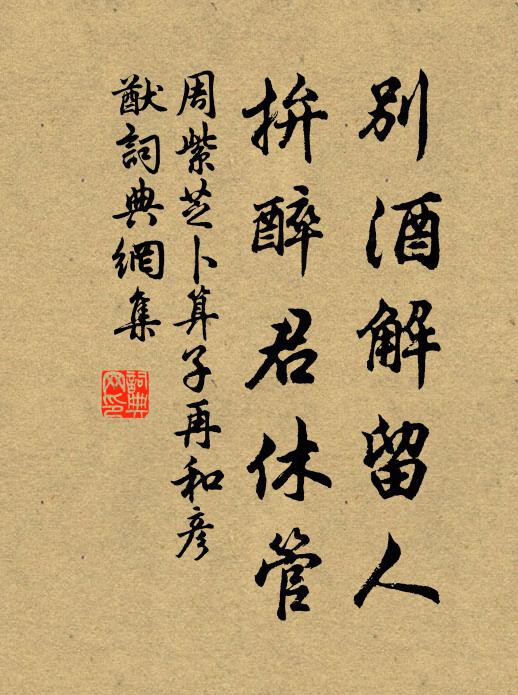 別酒解留人
拚醉君休管
周紫芝卜算子再和彦
猷詞典網集
詞典
網印